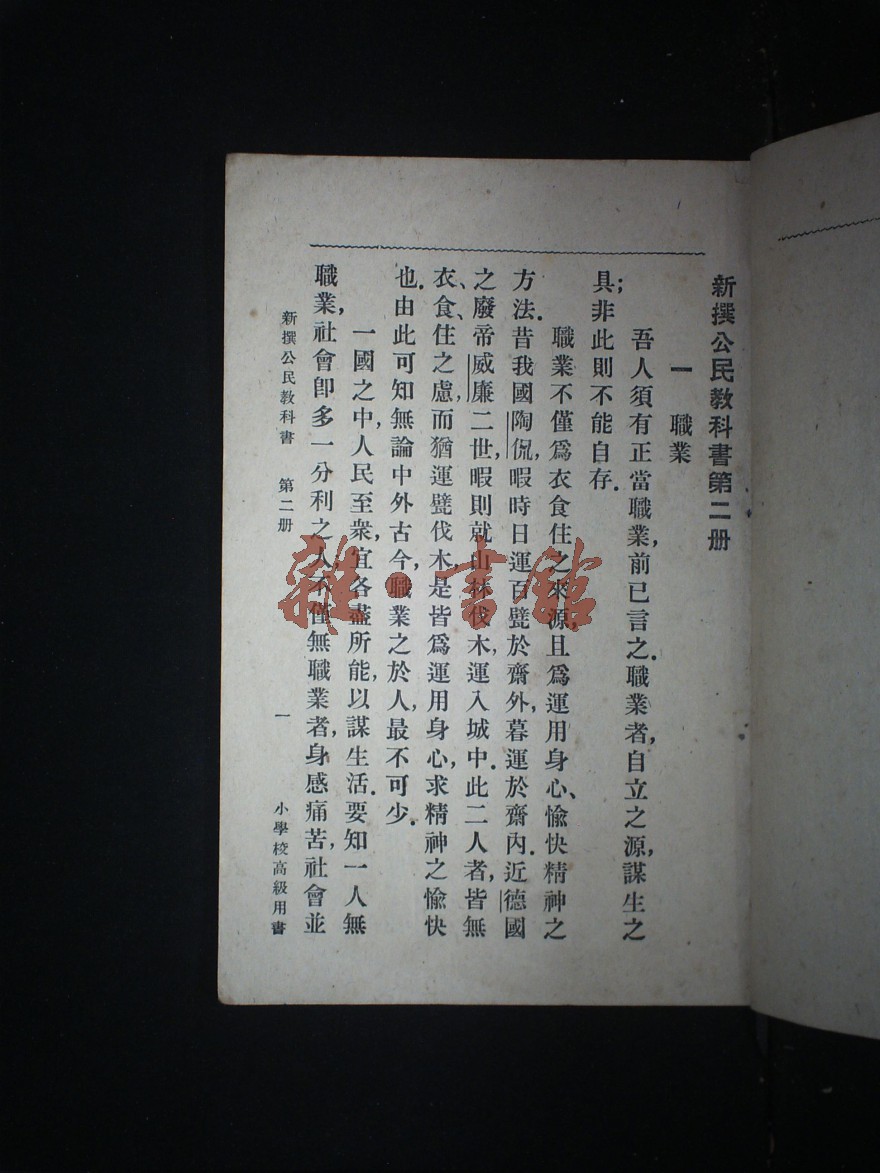 新撰公民教科書第二册
一　職業
吾人須有正當職業,前已言之.職業者,自立之源,謀生之
具;非此則不能自存.
職業不僅爲衣食住之來源,且爲運用身心、愉快精神之
方法.昔我國陶侃,暇時日運百甓於齋外,暮運於齋內.近德國
之廢帝威廉二世,暇則就山林伐木,運入城中.此二人者,皆無
衣、食、住之慮,而猶運甓伐木,是皆爲運用身心,求精神之愉快
也.由此可知無論中外古今,職業之於人,最不可少.
一國之中,人民至衆,宜各盡所能,以謀生活.要知一人無
職業,社會卽多一分利之人.不僅無職業者,身感痛苦,社會並
新撰公民教科書　第二册　一　小學校高級用書
雜·書館